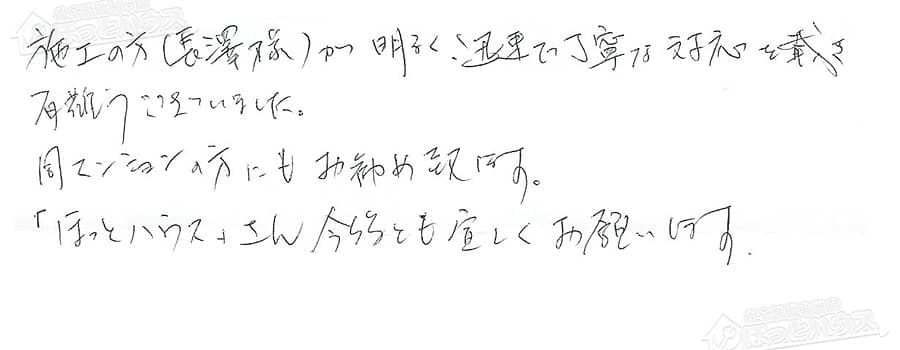 施工の方(長澤様)が明るく、迅速で丁寧な対応を戴き
有難うございました。
同マンションの方にもお勧め致します。
「ほっとハウス」さん今後とも宜しくお願いします.
ほっとハウス